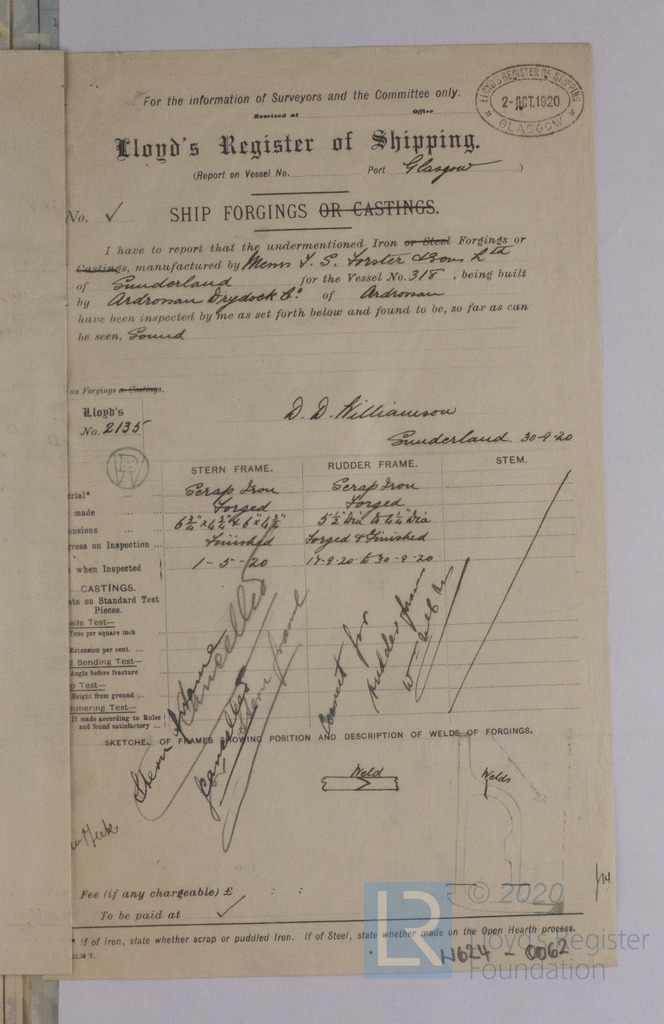 For the information of Surveyors and the Committee only.
LLOYD'S REGISTER OF SHIPPING
2-OCT.1920
GLASGOW
Received at Office
Lloyd's Register of Shipping.
(Report on Vessel No. Port Glasgow )
No. ✓ SHIP FORGINGS OR CASTINGS.
I have to report that the undermentioned Iron or Steel Forgings or
Castings, manufactured by Messrs T. S. Forster & Sons Ltd
of Sunderland for the Vessel No. 318, being built
by Ardrossan Drydock Co. of Ardrossan
have been inspected by me as set forth below and found to be, so far as can
be seen, Sound
on Forgings or Castings.
Lloyd's
No. 2135
LR
D. D. Williamson
Sunderland. 30-9-20
STERN FRAME. RUDDER FRAME. STEM.
rial* Scrap Iron Scrap Iron
made Forged Forged
ensions 5½" Dia to 4¼" Dia
gress on Inspection Finished Forged & Finished
when Inspected 1-5-20 17-9-20 to 30-9-20
CASTINGS.
ts on Standard Test
Pieces.
sile Test—
Tons per square inch
Extension per cent.
d Bending Test—
Angle before fracture
p Test—
Height from ground
mering Test—
If made according to Rules
and found satisfactory
Stern frame
Cancelled
Cancelled
stern frame
rudder frame
SKETCHES OF FRAMES SHOWING POSITION AND DESCRIPTION OF WELDS OF FORGINGS.
Weld
Welds
Fee (if any chargeable) £ : :
To be paid at ✓
* If of Iron, state whether scrap or puddled Iron. If of Steel, state whether made on the Open Hearth process.
W624 - 0062
LR
© 2020
Lloyd's Register
Foundation